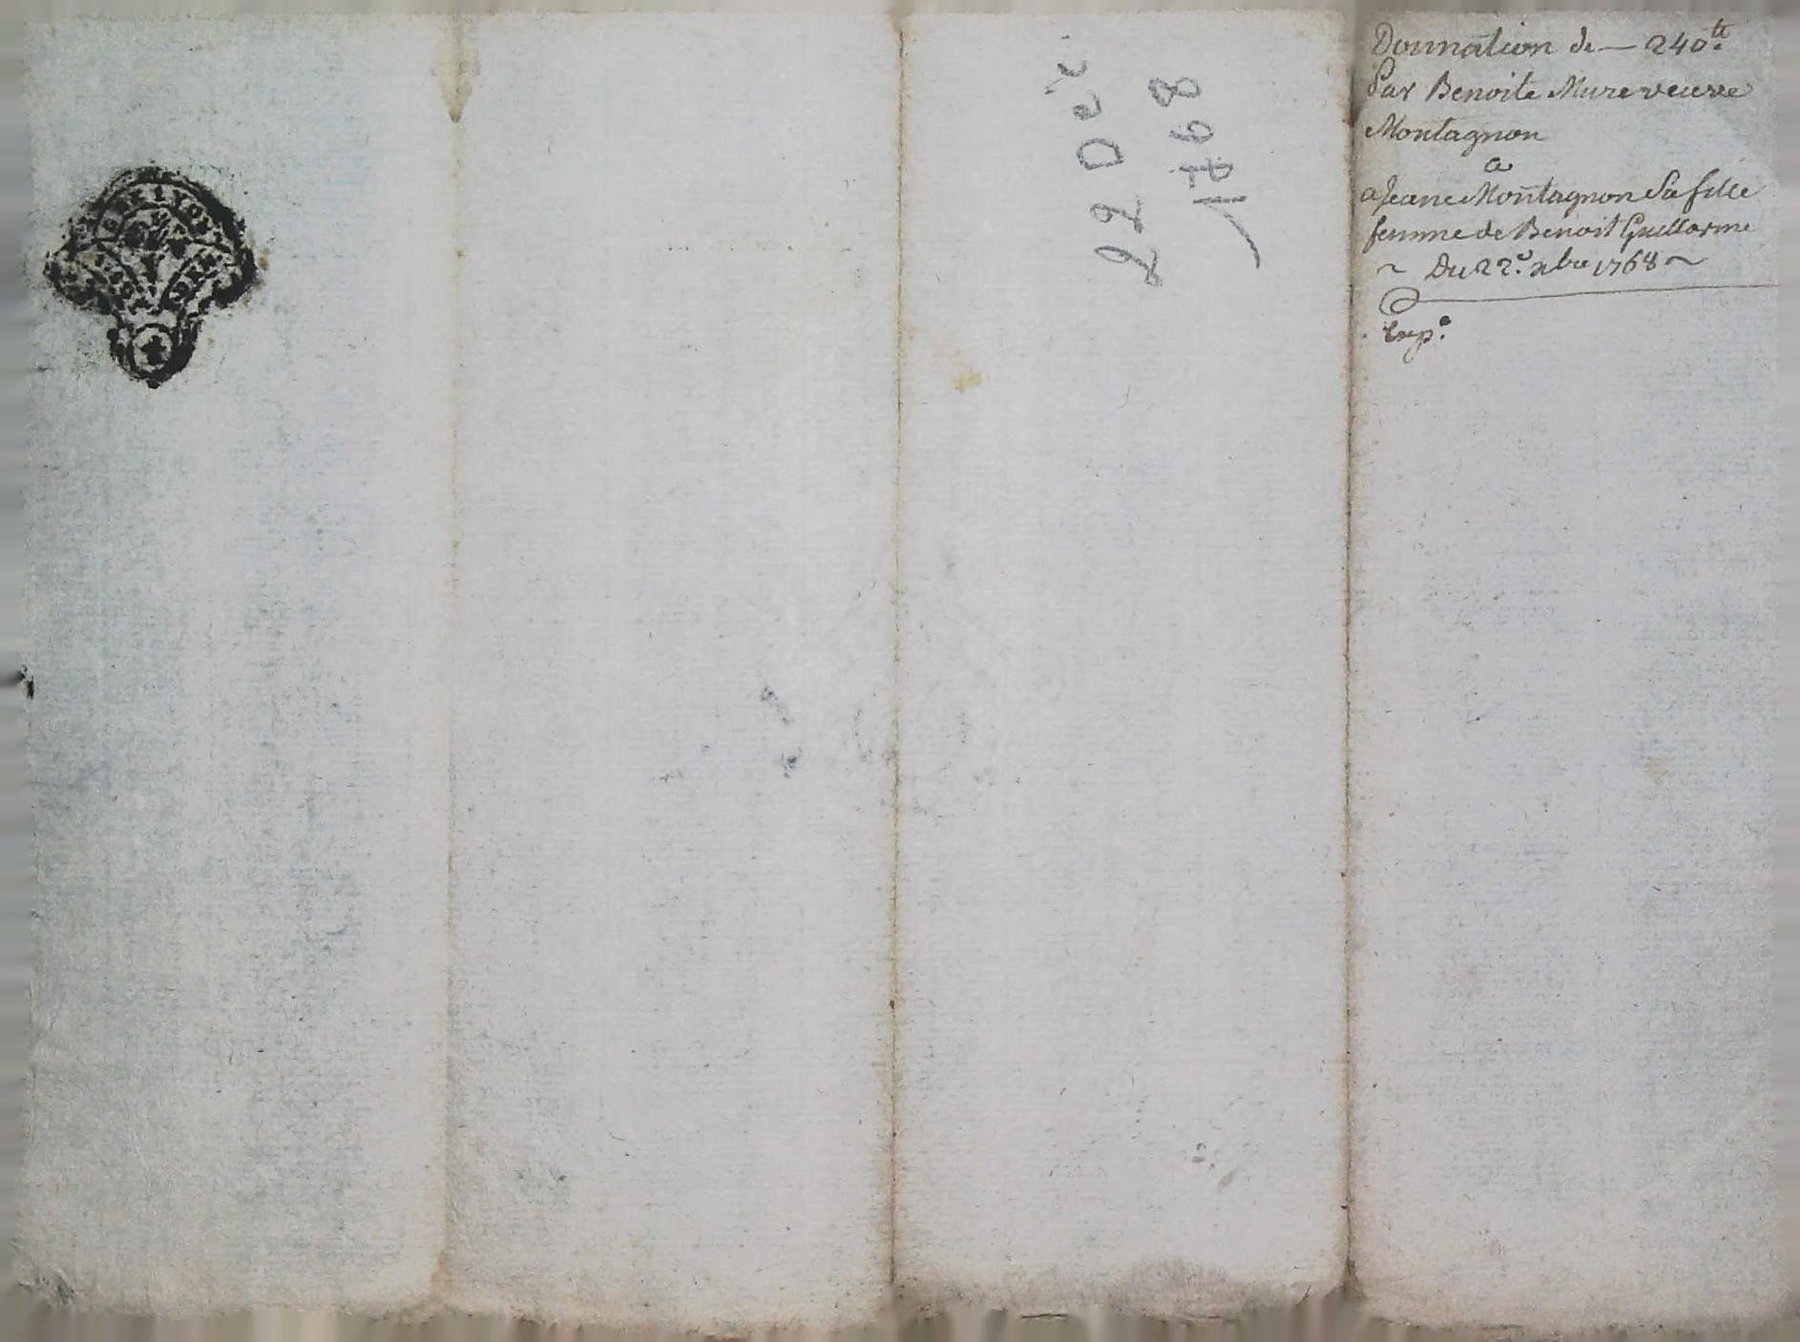 Donnation de — 240tt
Par Benoite Mure veuve
Montagnon
a
a Jeane Montagnon Sa fille
femme de Benoit Guillarme
~ Du 22e xbre 1768 ~
Exp.
22 Dec
1768